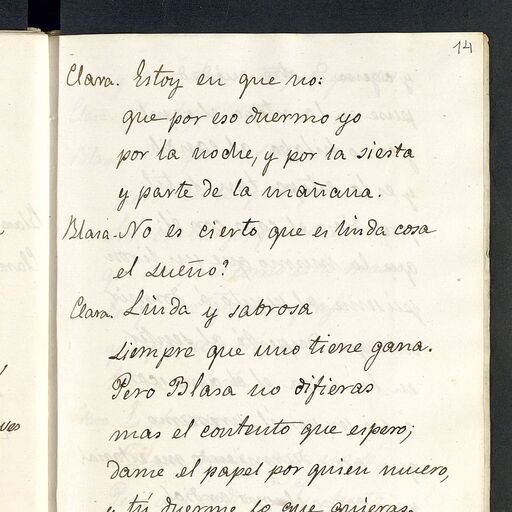 14
Clara. Estoy en que no:
que por eso duermo yo
por la noche, y por la siesta
y parte de la mañana.
Blasa-No es cierto que es linda cosa
el sueño?
Clara. Linda y sabrosa
siempre que uno tiene gana.
Pero Blasa no difieras
mas el contento que espero;
dame el papel por quien muero,
y tú duerme lo que quieras.
ves